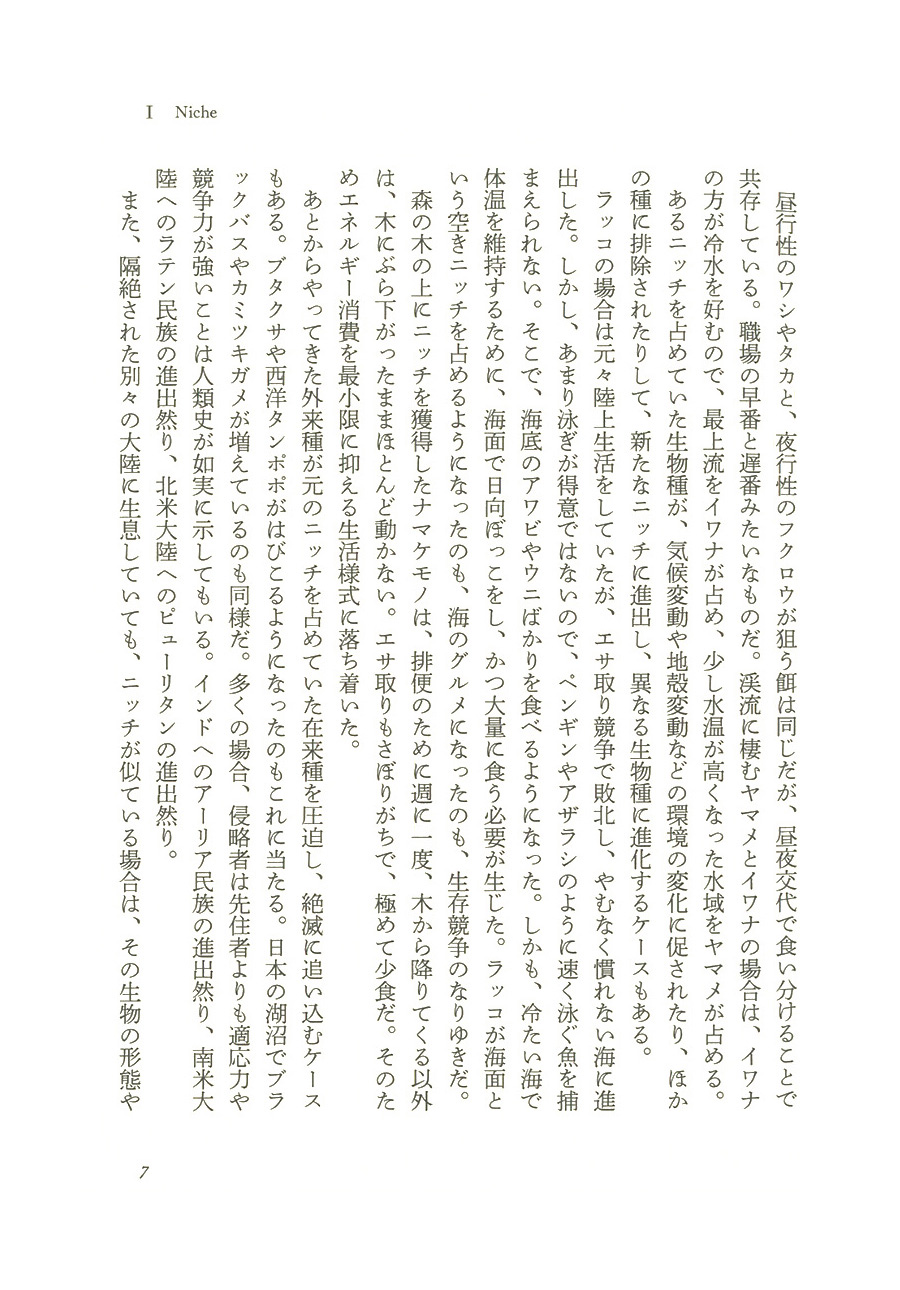 I Niche
昼行性のワシやタカと、夜行性のフクロウが狙う餌は同じだが、昼夜交代で食い分けることで
共存している。職場の早番と遅番みたいなものだ。渓流に棲むヤマメとイワナの場合は、イワナ
の方が冷水を好むので、最上流をイワナが占め、少し水温が高くなった水域をヤマメが占める。
あるニッチを占めていた生物種が、気候変動や地殻変動などの環境の変化に促されたり、ほか
の種に排除されたりして、新たなニッチに進出し、異なる生物種に進化するケースもある。
ラッコの場合は元々陸上生活をしていたが、エサ取り競争で敗北し、やむなく慣れない海に進
出した。しかし、あまり泳ぎが得意ではないので、ペンギンやアザラシのように速く泳ぐ魚を捕
まえられない。そこで、海底のアワビやウニばかりを食べるようになった。しかも、冷たい海で
体温を維持するために、海面で日向ぼっこをし、かつ大量に食う必要が生じた。ラッコが海面と
いう空きニッチを占めるようになったのも、海のグルメになったのも、生存競争のなりゆきだ。
森の木の上にニッチを獲得したナマケモノは、排便のために週に一度、木から降りてくる以外
は、木にぶら下がったままほとんど動かない。エサ取りもさぼりがちで、極めて少食だ。そのた
めエネルギー消費を最小限に抑える生活様式に落ち着いた。
あとからやってきた外来種が元のニッチを占めていた在来種を圧迫し、絶滅に追い込むケース
もある。ブタクサや西洋タンポポがはびこるようになったのもこれに当たる。日本の湖沼でブラ
ックバスやカミツキガメが増えているのも同様だ。多くの場合、侵略者は先住者よりも適応力や
競争力が強いことは人類史が如実に示してもいる。インドへのアーリア民族の進出然り、南米大
陸へのラテン民族の進出然り、北米大陸へのピューリタンの進出然り。
また、隔絶された別々の大陸に生息していても、ニッチが似ている場合は、その生物の形態や
7